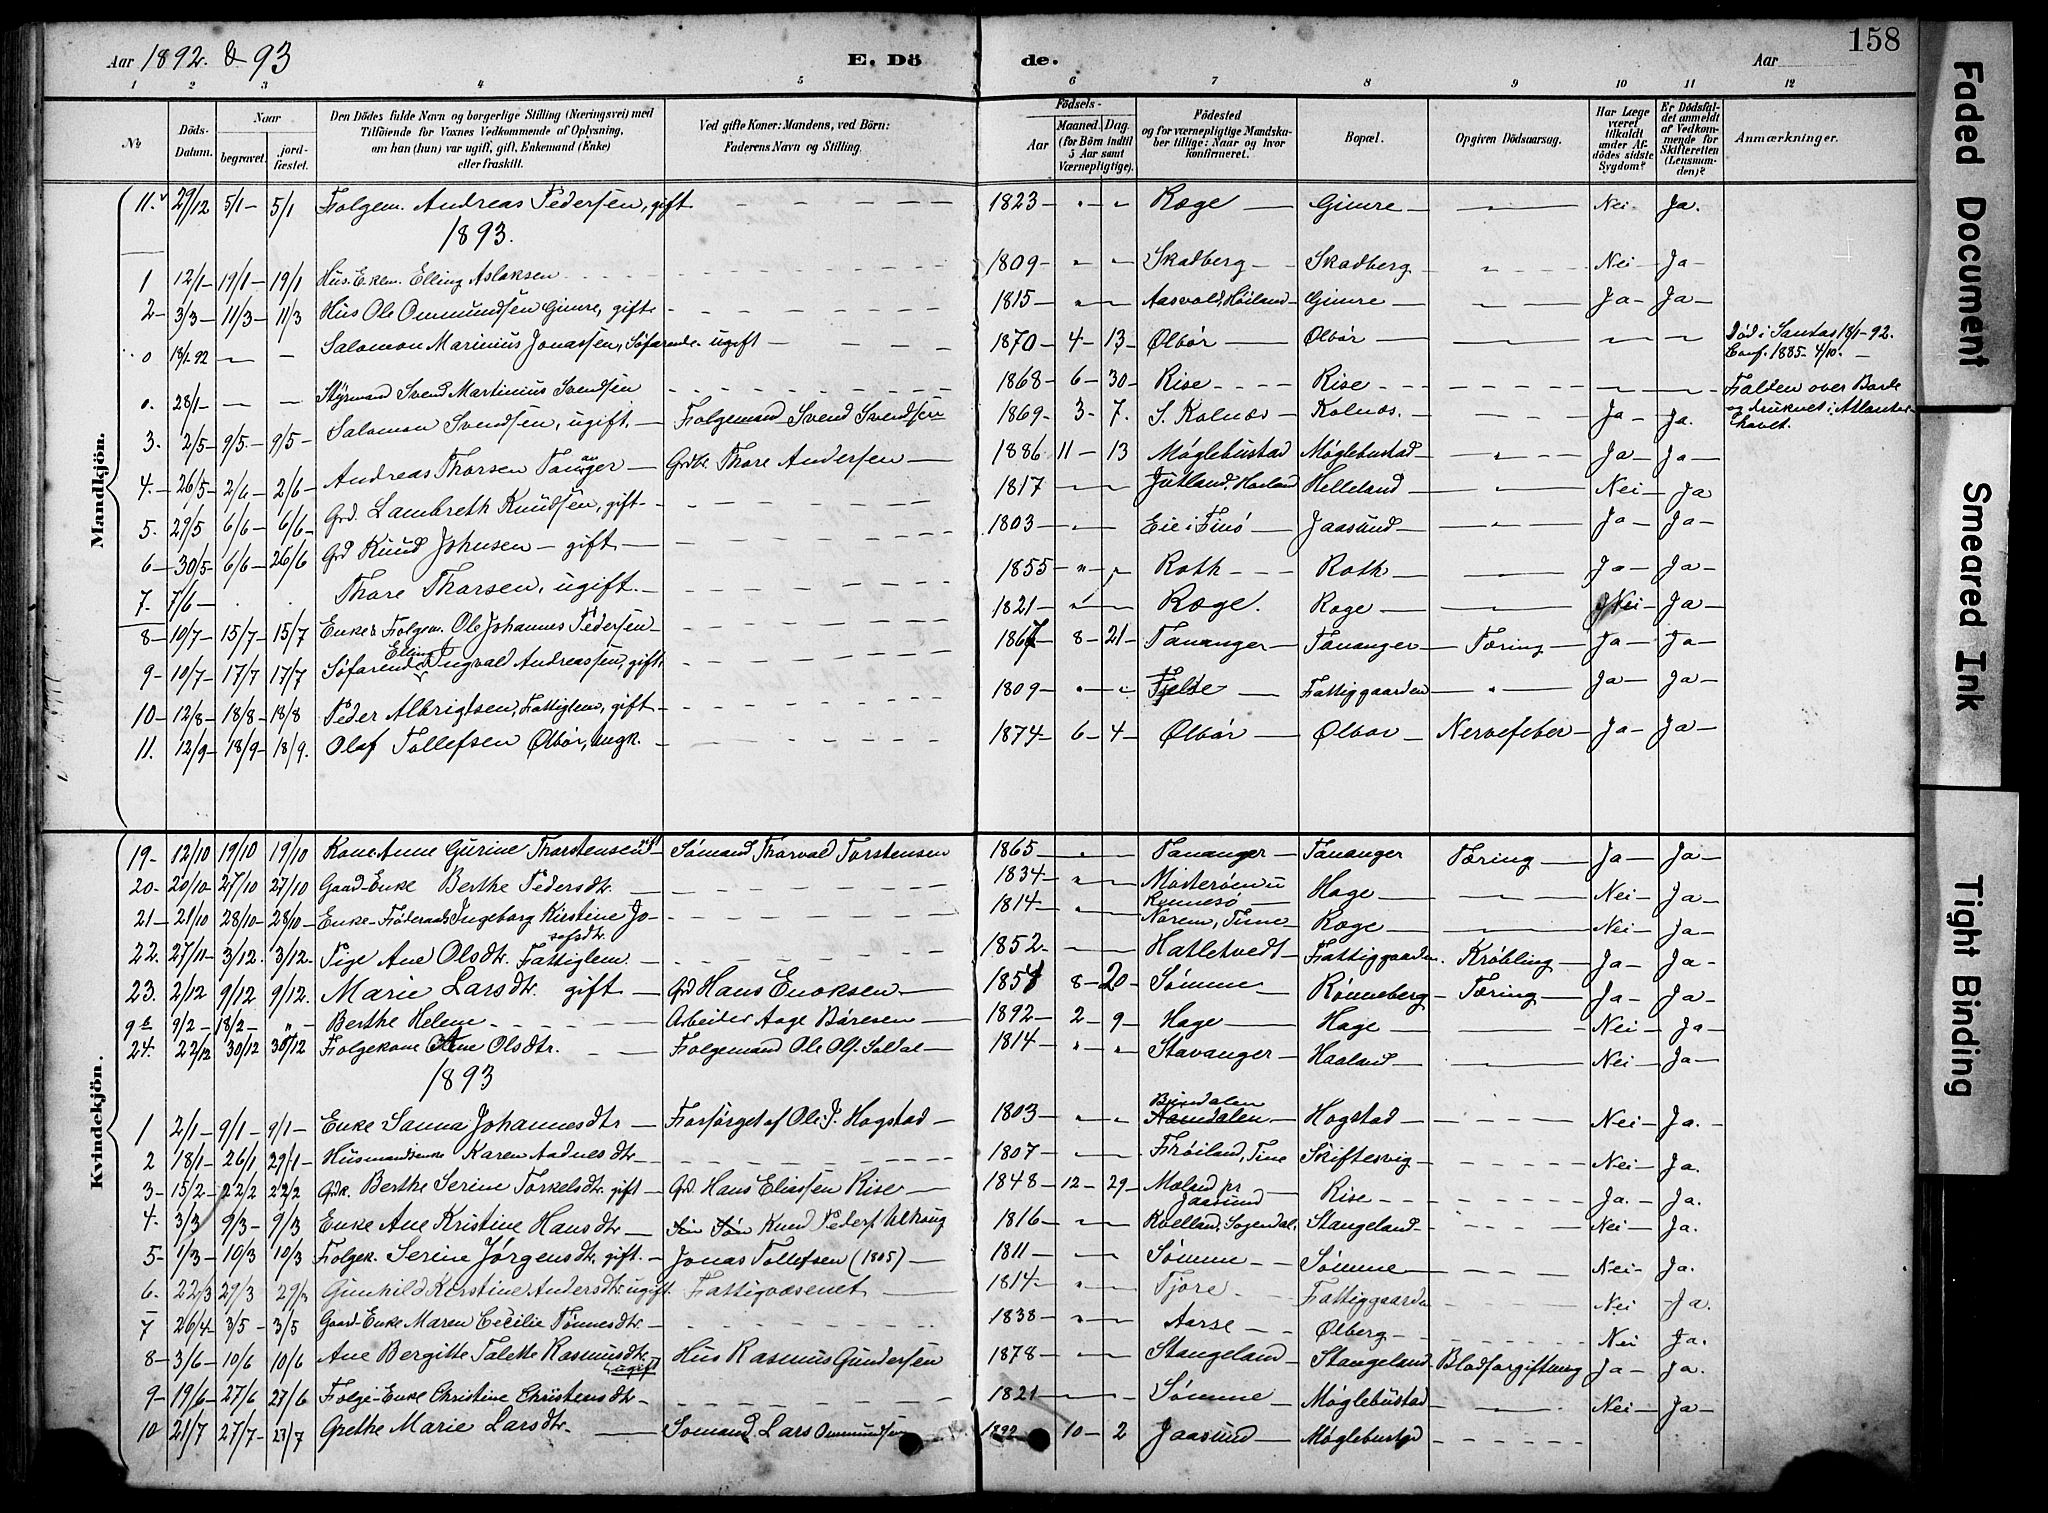 158
Aar 1892 & 93 E. Döde. Aar
1 2 3 4 5 6 7 8 9 10 11 12
№ Döds-Datum. Naar begravet. jordfæstet. Den Dödes fulde Navn og borgerlige Stilling (Næringsvei) med Tilföiende for Voxnes Vedkommende af Oplysning, om han (hun) var ugift, gift, Enkemand (Enke) eller fraskilt. Ved gifte Koner: Mandens, ved Börn: Faderens Navn og Stilling. Födsels- Aar Maaned. Dag. (for Börn indtil 5 Aar samt Værnepligtige). Födested og for værnepligtige Mandskaber tillige: Naar og hvor konfirmeret. Bopæl. Opgiven Dödsaarsag. Har Læge været tilkaldt under Afdödes sidste Sygdom? Er Dödsfaldet anmeldt af Vedkommende for Skifteretten (Lensmanden)? Anmærkninger.
Mandkjön.
11. 29/12 5/1 5/1 Folgem. Andreas Pedersen, gift 1823 Ræge Gimre Nei Ja.
1893.
1 12/1 19/1 19/1 Hus. Enkem. Elling Aslaksen 1809 Skadberg Skadberg Nei Ja
2 3/3 11/3 11/3 Hus Ole Ommundsen Gimre, gift 1815 Aasvold, Høiland Gimre Ja Ja
0 18/1 92 Salomon Marinius Jonassen, Søfarende ugift 1870 4 13 Ølbør Ølbør Død i Santos 18/1-92. Conf. 1885 4/10.
0. 28/1 Styrmand Svend Martinius Svendsen 1868 6 30 Rise Rise Falden over Borde og druknet i Atlanterhavet.
3. 2/5 9/5 9/5 Salomon Svendsen, ugift Folgemand Svend Svendsen 1869 3 7. S. Kolnæs Kolnæs. Ja Ja.
4. 26/5 2/6 2/6 Andreas Thorsen Tananger Grdbr. Thore Andersen 1886 11 13 Møglebustad Møglebustad Ja Ja
5. 29/5 6/6 6/6 Grd. Lambreth Knudsen, gift 1817 Jutland, Haaland Helleland Nei Ja
6 30/5 6/6 26/6 Grd Knud Johnsen gift 1803 Eie i Finø Jaasund Ja Ja
7. 7/6 Thore Thorsen, ugift. 1855 Roth Roth Ja Ja
8 10/7 15/7 15/7 Enke & Folgem. Ole Johannes Pedersen 1821 Ræge. Roge Nei Ja
9 10/7 17/7 17/7 Søfarende Elling Ingvald Andreassen, gift. 1867 8 21 Tananger Tananger Tæring Ja Ja
10 12/8 18/8 18/8 Peder Albrigtsen, Fattiglem, gift 1809 Fjelde Fattiggaarden Ja Ja
11. 12/9 18/9 18/9. Olaf Tollefsen Ølbør, ungk. 1874 6 4 Ølbør Ølbør Nervefeber Ja Ja
Kvindekjön.
19 12/10 19/10 19/10 Kone Anne Gurine Thorstensen gift Sømand Thorval Torstensen 1865 Tananger Tananger Tæring Ja Ja
20 20/10 27/10 27/10 Gaard-Enke Berthe Pedersdtr. 1834 Mosterøen i Rennesø Hage Nei Ja
21 21/10 28/10 28/10 Enke-Føderaads Ingeborg Kirstine Josefsdtr. 1814 Norem, Time Ræge Nei Ja
22. 27/11 3/12. 3/12. Pige Ane Olsdtr. Fattiglem 1852 Hatletvedt Fattiggaarden Krøbling Ja Ja
23. 2/12 9/12 9/12. Marie Larsdtr. gift Grd Hans Enoksen 1854 8 20 Sømme Rønneberg Tæring Ja Ja
9/2 18/2 Berthe Helene Arbeider Aage Børesen 1892 2 9 Hage Hage Nei Ja
24. 22/12 30/12 30/12 Folgekone Ane Olsdtr. Folgemand Ole Ols. Soldal 1814 Stavanger Haaland Nei Ja
1893
1 2/1 9/1 9/1 Enke Sanna Johannesdtr Forsørget af Ole P. Hogstad 1803 Bundalen Hogstad Nei Ja.
2 18/1 26/1 29/1 Husmandsenke Karen Aadnesdtr. 1807 Frøiland, Time Skiftesvig Nei Ja.
3 15/2 22/2 22/2 Grdk. Berthe Serine Torkelsdtr. gift Grd. Hans Eliassen Rise 1848 12 29 Meland pr Jaasund Rise Ja. Ja.
4. 3/3 9/3 9/3 Enke Ane Kristine Hansdtr Søn Knud Peders. 1816 Kvelland, Sogendal. Stangeland Nei Ja.
5 1/3 10/3 10/3 Folgek. Serine Jørgensdtr. gift. Jonas Tollefsen (1805) 1811 Sømme Sømme Nei Ja.
6. 22/3 29/3 29/3 Gunhild Kirstine Andersdtr ugift Fattigvæsenet 1814 Tjore Fattiggaarden Nei Ja.
7 26/4 3/5 3/5 Gaard-Enke Maren Cecilie Tønnesdtr. 1838 Aarse Ølberg Nei Ja.
8 3/6 10/6 10/6 Ane Bergitte Talette Rasmusdtr. ugift Hus Rasmus Gundersen 1878 Stangeland Stangeland Blodforgiftning Ja Ja.
9 19/6 27/6 27/6 Folge-Enke Christine Christensdtr 1821 Sømme Møglebustad Nei Ja
10 21/7 27/7 23/7 Grethe Marie Larsdtr. Sømand Lars Ommundsen 1892 10 2 Jaasund Møglebustad
Faded Document
Smeared Ink
Tight Binding